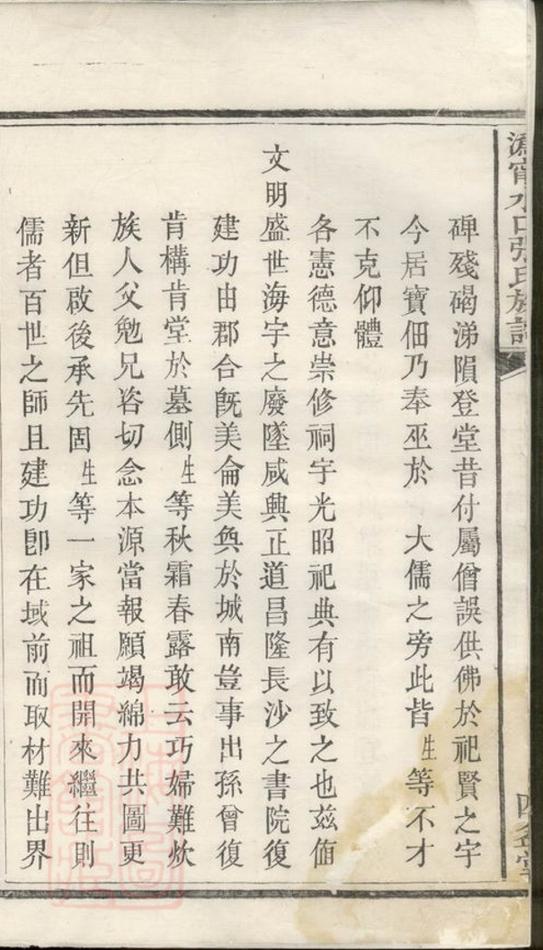 溈甯水口張氏族譜
碑殘碣涕隕登堂昔付屬僧誤供佛於祀賢之宇
今居寶佃乃奉巫於 大儒之旁此皆生等不才
不克仰體
各憲德意崇修祠宇光昭祀典有以致之也茲値
文明盛世海宇之廢墜咸興正道昌隆長沙之書院復
建功由郡合旣美侖美奐於城南豈事出孫曾復
肯構肯堂於墓側生等秋霜春露敢云巧婦難炊
族人父勉兄咨切念本源當報願竭綿力共圖更
新但啟後承先固生等一家之祖而開來繼往則
儒者百世之師且建功卽在域前而取材難出界